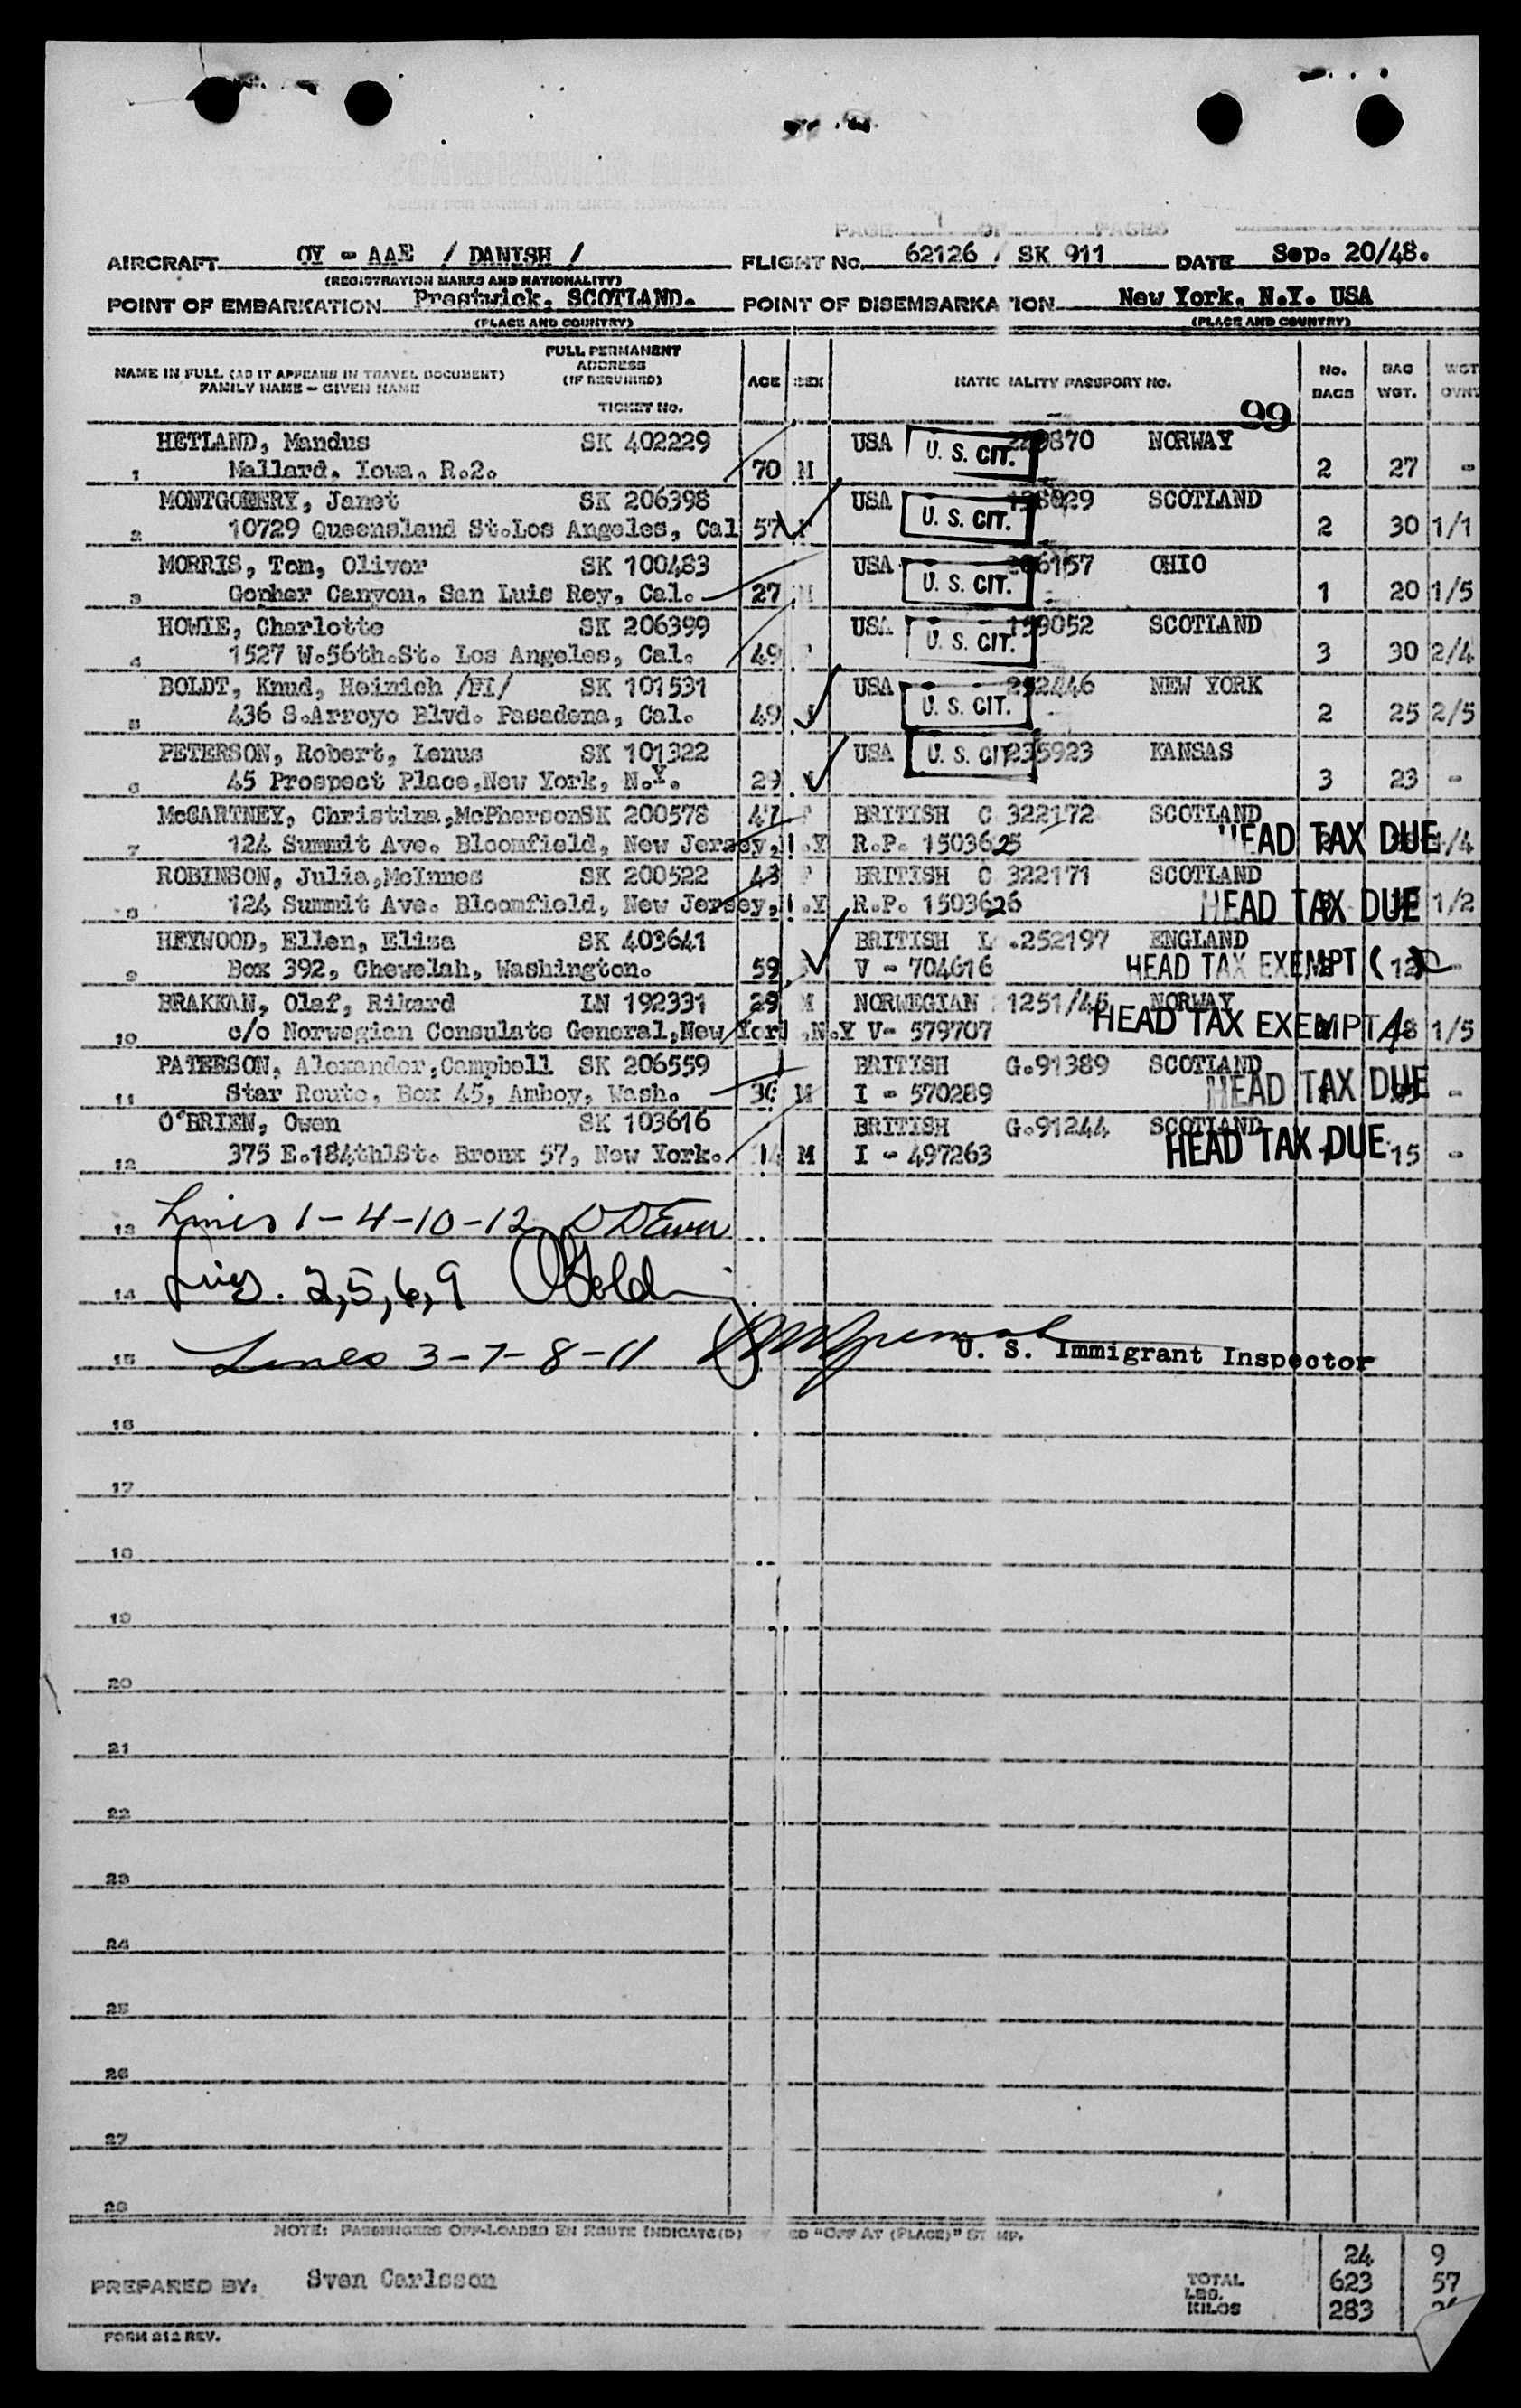 PAGE 1 OF 1 PAGES
AIRCRAFT OY - AAE / DANISH / FLIGHT No. 62126 / SK 911 DATE Sep. 20/48.
(REGISTRATION MARKS AND NATIONALITY)
POINT OF EMBARKATION Prestwick, SCOTLAND. POINT OF DISEMBARKATION New York, N.Y. USA
(PLACE AND COUNTRY) (PLACE AND COUNTRY)
NAME IN FULL (AS IT APPEARS IN TRAVEL DOCUMENT) FULL PERMANENT ADDRESS (IF REQUIRED) AGE SEX NATIONALITY PASSPORT No. No. BAGS BAG WGT. WGT OVN
FAMILY NAME - GIVEN NAME
TICKET No. 99
HETLAND, Mandus SK 402229 USA U. S. CIT. 870 NORWAY
1 Mallard, Iowa, R.2. 70 M 2 27 -
MONTGOMERY, Janet SK 206398 USA U. S. CIT. SCOTLAND
2 10729 Queensland St.Los Angeles, Cal 57 2 30 1/1
MORRIS, Tom, Oliver SK 100483 USA U. S. CIT. 6157 OHIO
3 Gopher Canyon, San Luis Rey, Cal. 27 M 1 20 1/5
HOWIE, Charlotte SK 206399 USA U. S. CIT. 9052 SCOTLAND
4 1527 W.56th.St. Los Angeles, Cal. 49 3 30 2/4
BOLDT, Knud, Heinich /HI/ SK 101531 USA U. S. CIT. 252446 NEW YORK
5 436 S.Arroyo Blvd. Pasadena, Cal. 49 2 25 2/5
PETERSON, Robert, Lenus SK 101322 USA U. S. CIT 235923 KANSAS
6 45 Prospect Place,New York, N.Y. 29 3 23 -
McCARTNEY, Christina,McPherson SK 200578 47 F BRITISH C 322172 SCOTLAND
7 124 Summit Ave. Bloomfield, New Jersey, R.P. 1503625 HEAD TAX DUE /4
ROBINSON, Julia,McInnes SK 200522 43 F BRITISH C 322171 SCOTLAND
8 124 Summit Ave. Bloomfield, New Jersey, R.P. 1503626 HEAD TAX DUE 1/2
HEYWOOD, Ellen, Eliza SK 403641 BRITISH L .252197 ENGLAND
9 Box 392, Chewelah, Washington. 59 V - 704616 HEAD TAX EXEMPT ( -
BRAKKAN, Olaf, Rikard IN 192331 29 M NORWEGIAN 1251/46 NORWAY
10 c/o Norwegian Consulate General,New York ,N.Y V- 579707 HEAD TAX EXEMPT 1/5
PATERSON, Alexander,Campbell SK 206559 BRITISH G.91389 SCOTLAND
11 Star Route, Box 45, Amboy, Wash. 36 M I - 570289 HEAD TAX DUE -
O'BRIEN, Owen SK 103616 BRITISH G.91244 SCOTLAND
12 375 E.184th1St. Bronx 57, New York. 14 M I - 497263 HEAD TAX DUE 15 -
13 Lines 1-4-10-12
14 Lines. 2,5,6,9
15 Lines 3-7-8-11 U. S. Immigrant Inspector
16
17
18
19
20
21
22
23
24
25
26
27
28
NOTE: PASSENGERS OFF-LOADED EN ROUTE INDICATE(D) ED "OFF AT (PLACE)" ST MP.
24 9
PREPARED BY: Sven Carlsson TOTAL LBS. 623 57
KILOS 283
FORM 212 REV.